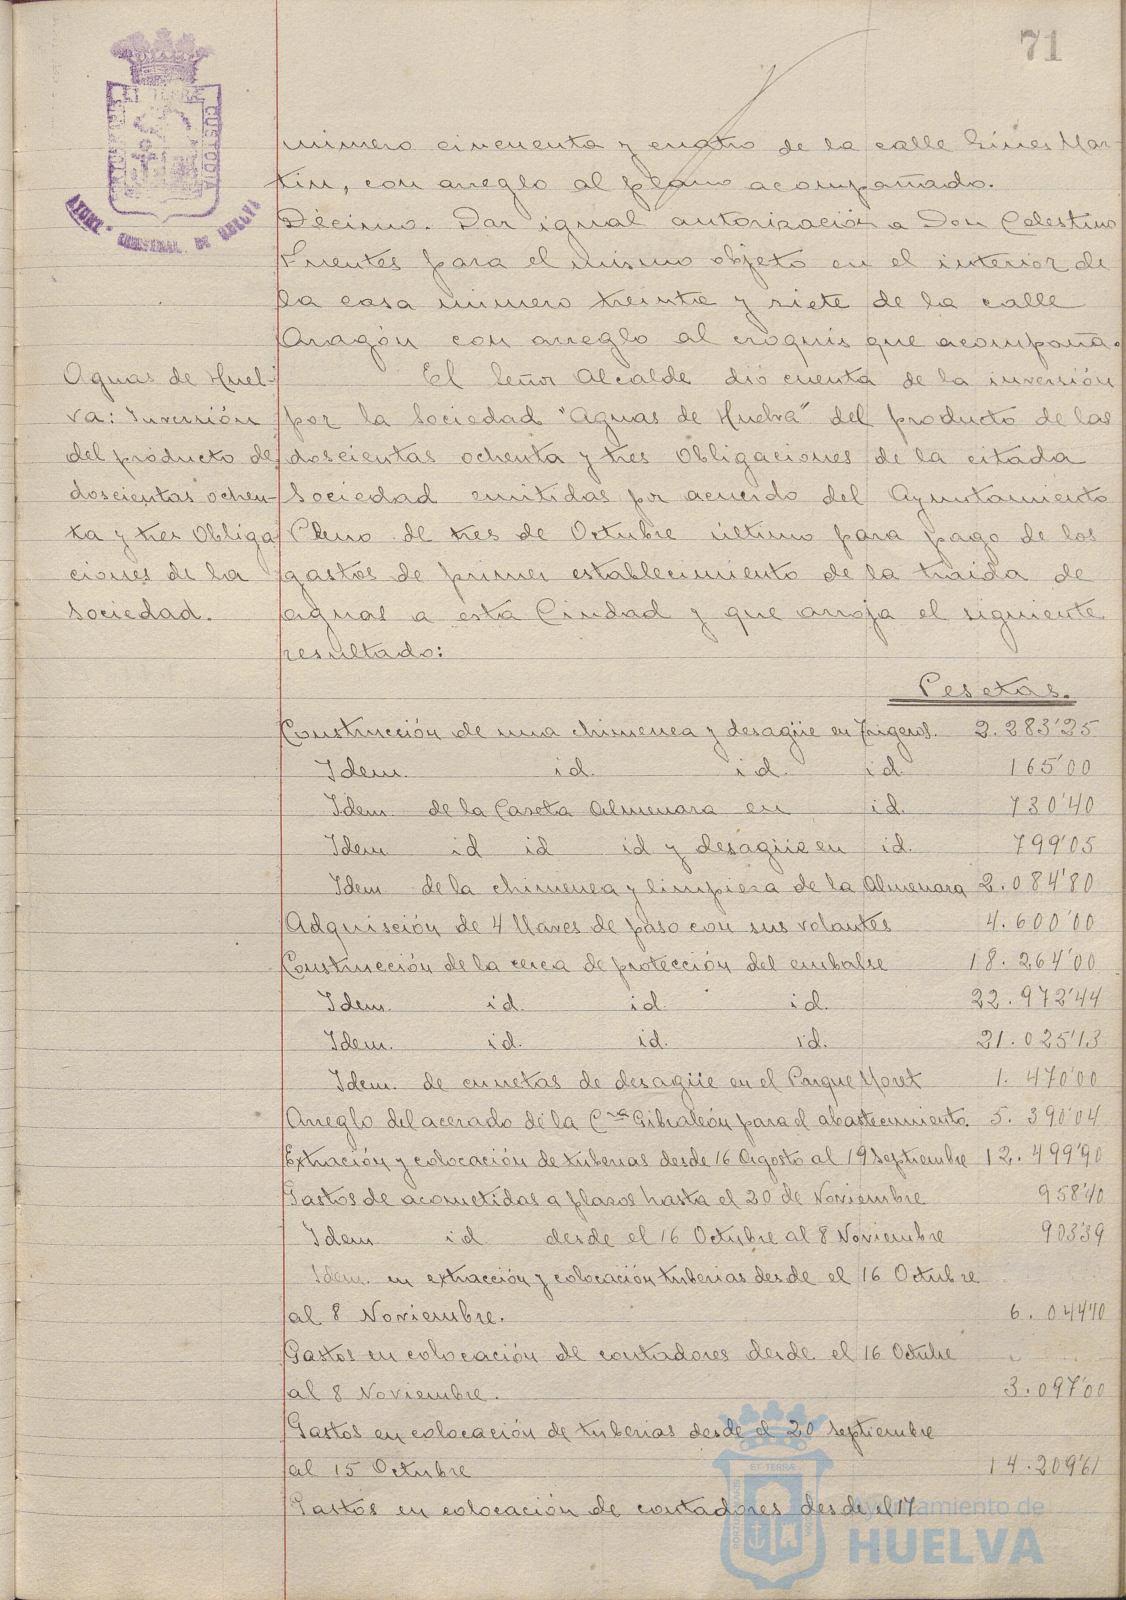 71
número cincuenta y cuatro de la calle Ginés Mar-
tín, con arreglo al plano acompañado.
Décimo. Dar igual autorización a Don Celestino
Fuentes para el mismo objeto en el interior de
la casa número treinta y siete de la calle
Aragón con arreglo al croquis que acompaña.
Aguas de Huel-
va: Inversión
del producto de
doscientas ochen-
ta y tres Obliga
ciones de la
Sociedad.
El Señor Alcalde dió cuenta de la inversión
por la Sociedad "Aguas de Huelva" del producto de las
doscientas ochenta y tres Obligaciones de la citada
Sociedad emitidas pr acuerdo del Ayuntamiento
Pleno de tres de Octubre último para pago de los
gastos de primer establecimiento de la traida de
aguas a esta Ciudad y que arroja el siguiente
resultado:
Pesetas.
Construcción de una chimenea y desagüe en Trigueros. 2.283'25
Idem. id. id. id. 165'00
Idem. de la Caseta Almenara en id. 730'40
Idem id id id y desagüe en id. 799'05
Idem de la chimenea y limpieza de la Almenara 2.084'80
Adquisción de 4 llaves de paso con sus volantes 4.600'00
Construcción de la cerca de protección del embalse 18.264'00
Idem. id. id. id. 22.972'44
Idem. id. id. id. 21.025'13
Idem. de cunetas de desagüe en el Parque Moret 1.470'00
Arreglo del acerado de la Cra Gibraleón para el abastecimiento. 5.390'04
Extración y colocación de tuberias desde 16 Agosto al 19 Septiembre 12.499'90
Gastos de acometidas a plazos hasta el 20 de Noviembre 958'40
Idem id desde el 16 Octubre al 8 Noviembre 903'39
Idem. en extracción y colocación tuberias desde el 16 Octubre
al 8 Noviembre. 6.044'40
Gastos en colocación de contadores desde el 16 Octubre
al 8 Noviembre. 3.097'00
Gastos en colocación de tuberias desde el 20 Septiembre
al 15 Octubre 14.209'61
Gastos en colocación de contadores desde el 17
Ayuntamiento de
HUELVA